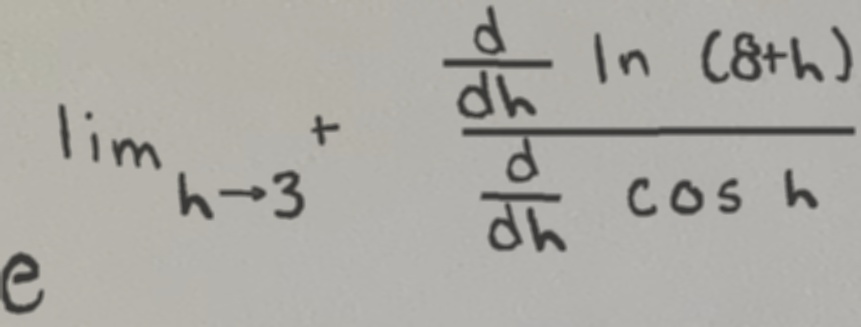 e^{\lim_{h \to 3^+} \frac{\frac{d}{dh} \ln (8+h)}{\frac{d}{dh} \cos h}}